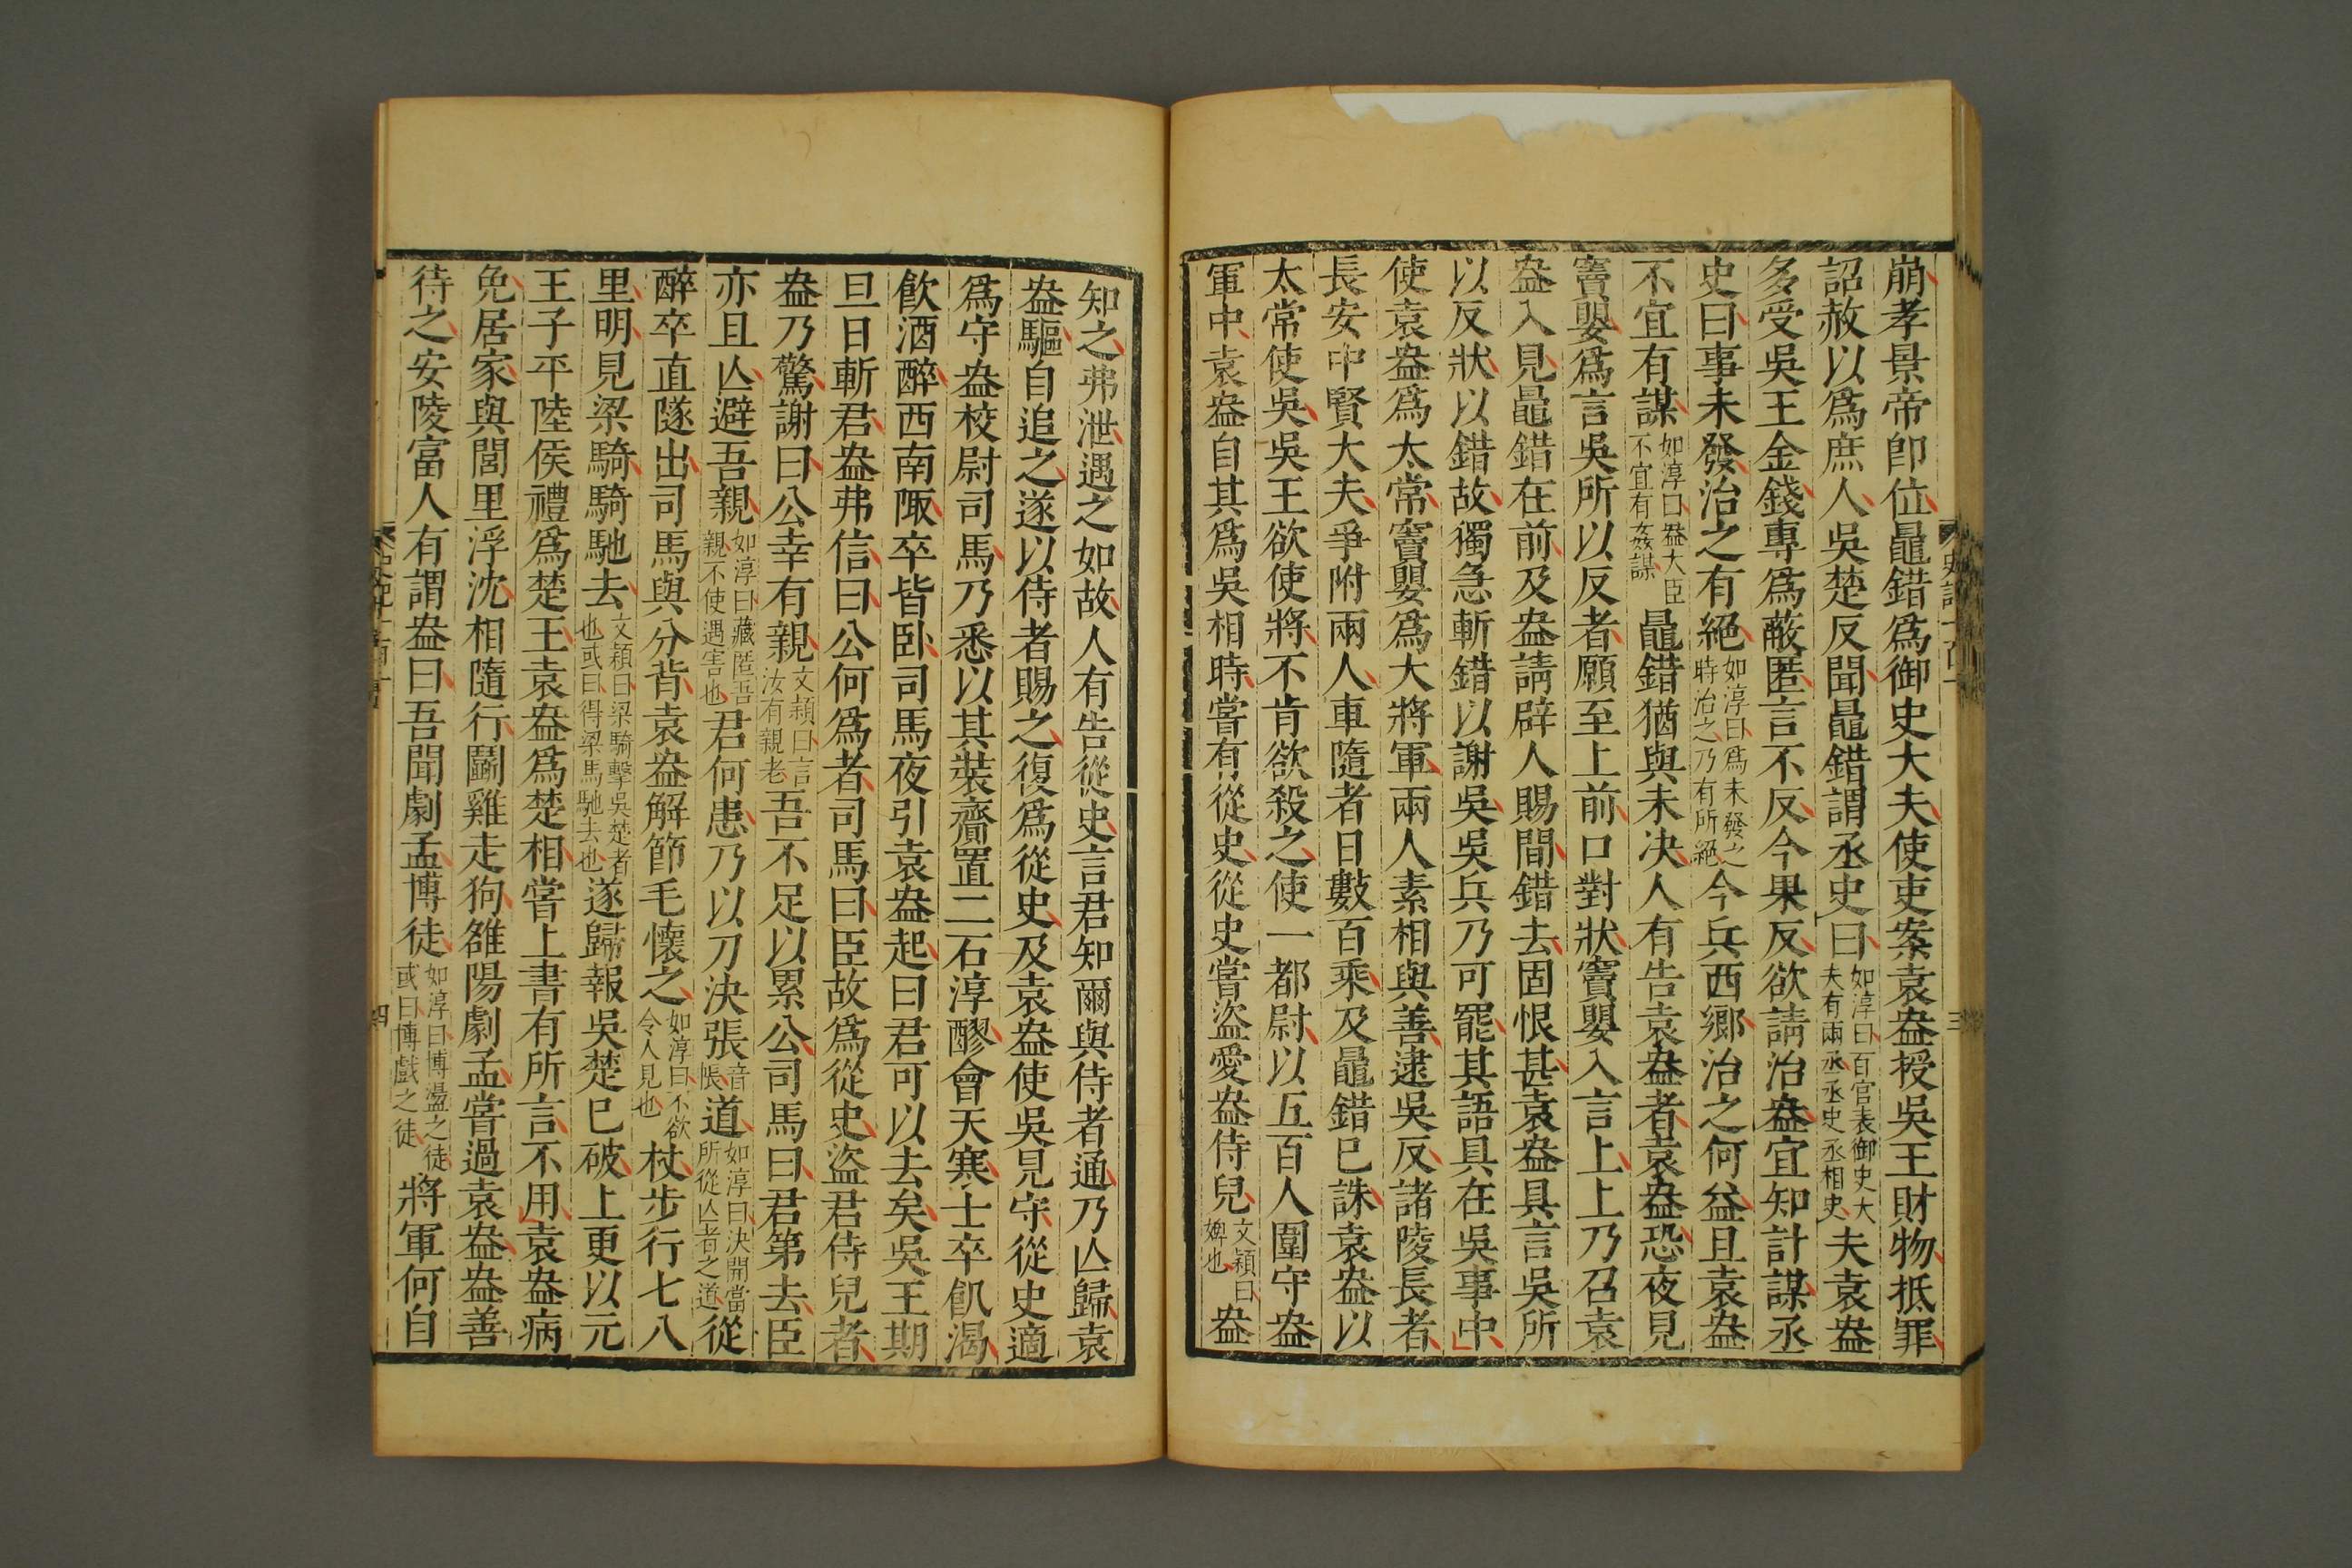 崩孝景帝卽位鼂錯爲御史大夫使吏案袁盎授吳王財物抵罪
詔赦以爲庶人吳楚反聞鼂錯謂丞史曰如淳曰百官表御史大夫有兩丞丞史丞相史夫袁盎
多受吳王金錢專爲蔽匿言不反今果反欲請治盎宜知計謀丞
史曰事未發治之有絕如淳曰爲未發之時治之乃有所絕今兵西鄉治之何益且袁盎
不宜有謀如淳曰盎大臣不宜有姦謀鼂錯猶與未決人有告袁盎者袁盎恐夜見
竇嬰爲言吳所以反者願至上前口對狀竇嬰入言上上乃召袁
盎入見鼂錯在前及盎請辟人賜閒錯去固恨甚袁盎具言吳所
以反狀以錯故獨急斬錯以謝吳吳兵乃可罷其語具在吳事中
使袁盎爲太常竇嬰爲大將軍兩人素相與善逮吳反諸陵長者
長安中賢大夫爭附兩人車隨者日數百乘及鼂錯已誅袁盎以
太常使吳吳王欲使將不肯欲殺之使一都尉以五百人圍守盎
軍中袁盎自其爲吳相時嘗有從史從史嘗盜愛盎侍兒文穎曰婢也盎
知之弗泄遇之如故人有告從史言君知爾與侍者通乃亾歸袁
盎驅自追之遂以侍者賜之復爲從史及袁盎使吳見守從史適
爲守盎校尉司馬乃悉以其裝齎置二石淳醪會天寒士卒飢渴
飮酒醉西南陬卒皆臥司馬夜引袁盎起曰君可以去矣吳王期
旦日斬君盎弗信曰公何爲者司馬曰臣故爲從史盜君侍兒者
盎乃驚謝曰公幸有親文穎曰言汝有親老吾不足以累公司馬曰君第去臣
亦且亾避吾親如淳曰藏匿吾親不使遇害也君何患乃以刀決張音帳道如淳曰決開當所從亾者之道從
醉卒直隧出司馬與分背袁盎解節毛懷之如淳曰不欲令人見也杖步行七八
里明見梁騎騎馳去文穎曰梁騎擊吳楚者也或曰得梁馬馳去也遂歸報吳楚已破上更以元
王子平陸侯禮爲楚王袁盎爲楚相嘗上書有所言不用袁盎病
免居家與閭里浮沈相隨行鬬雞走狗雒陽劇孟嘗過袁盎盎善
待之安陵富人有謂盎曰吾聞劇孟博徒如淳曰博盪之徒或曰博戲之徒將軍何自